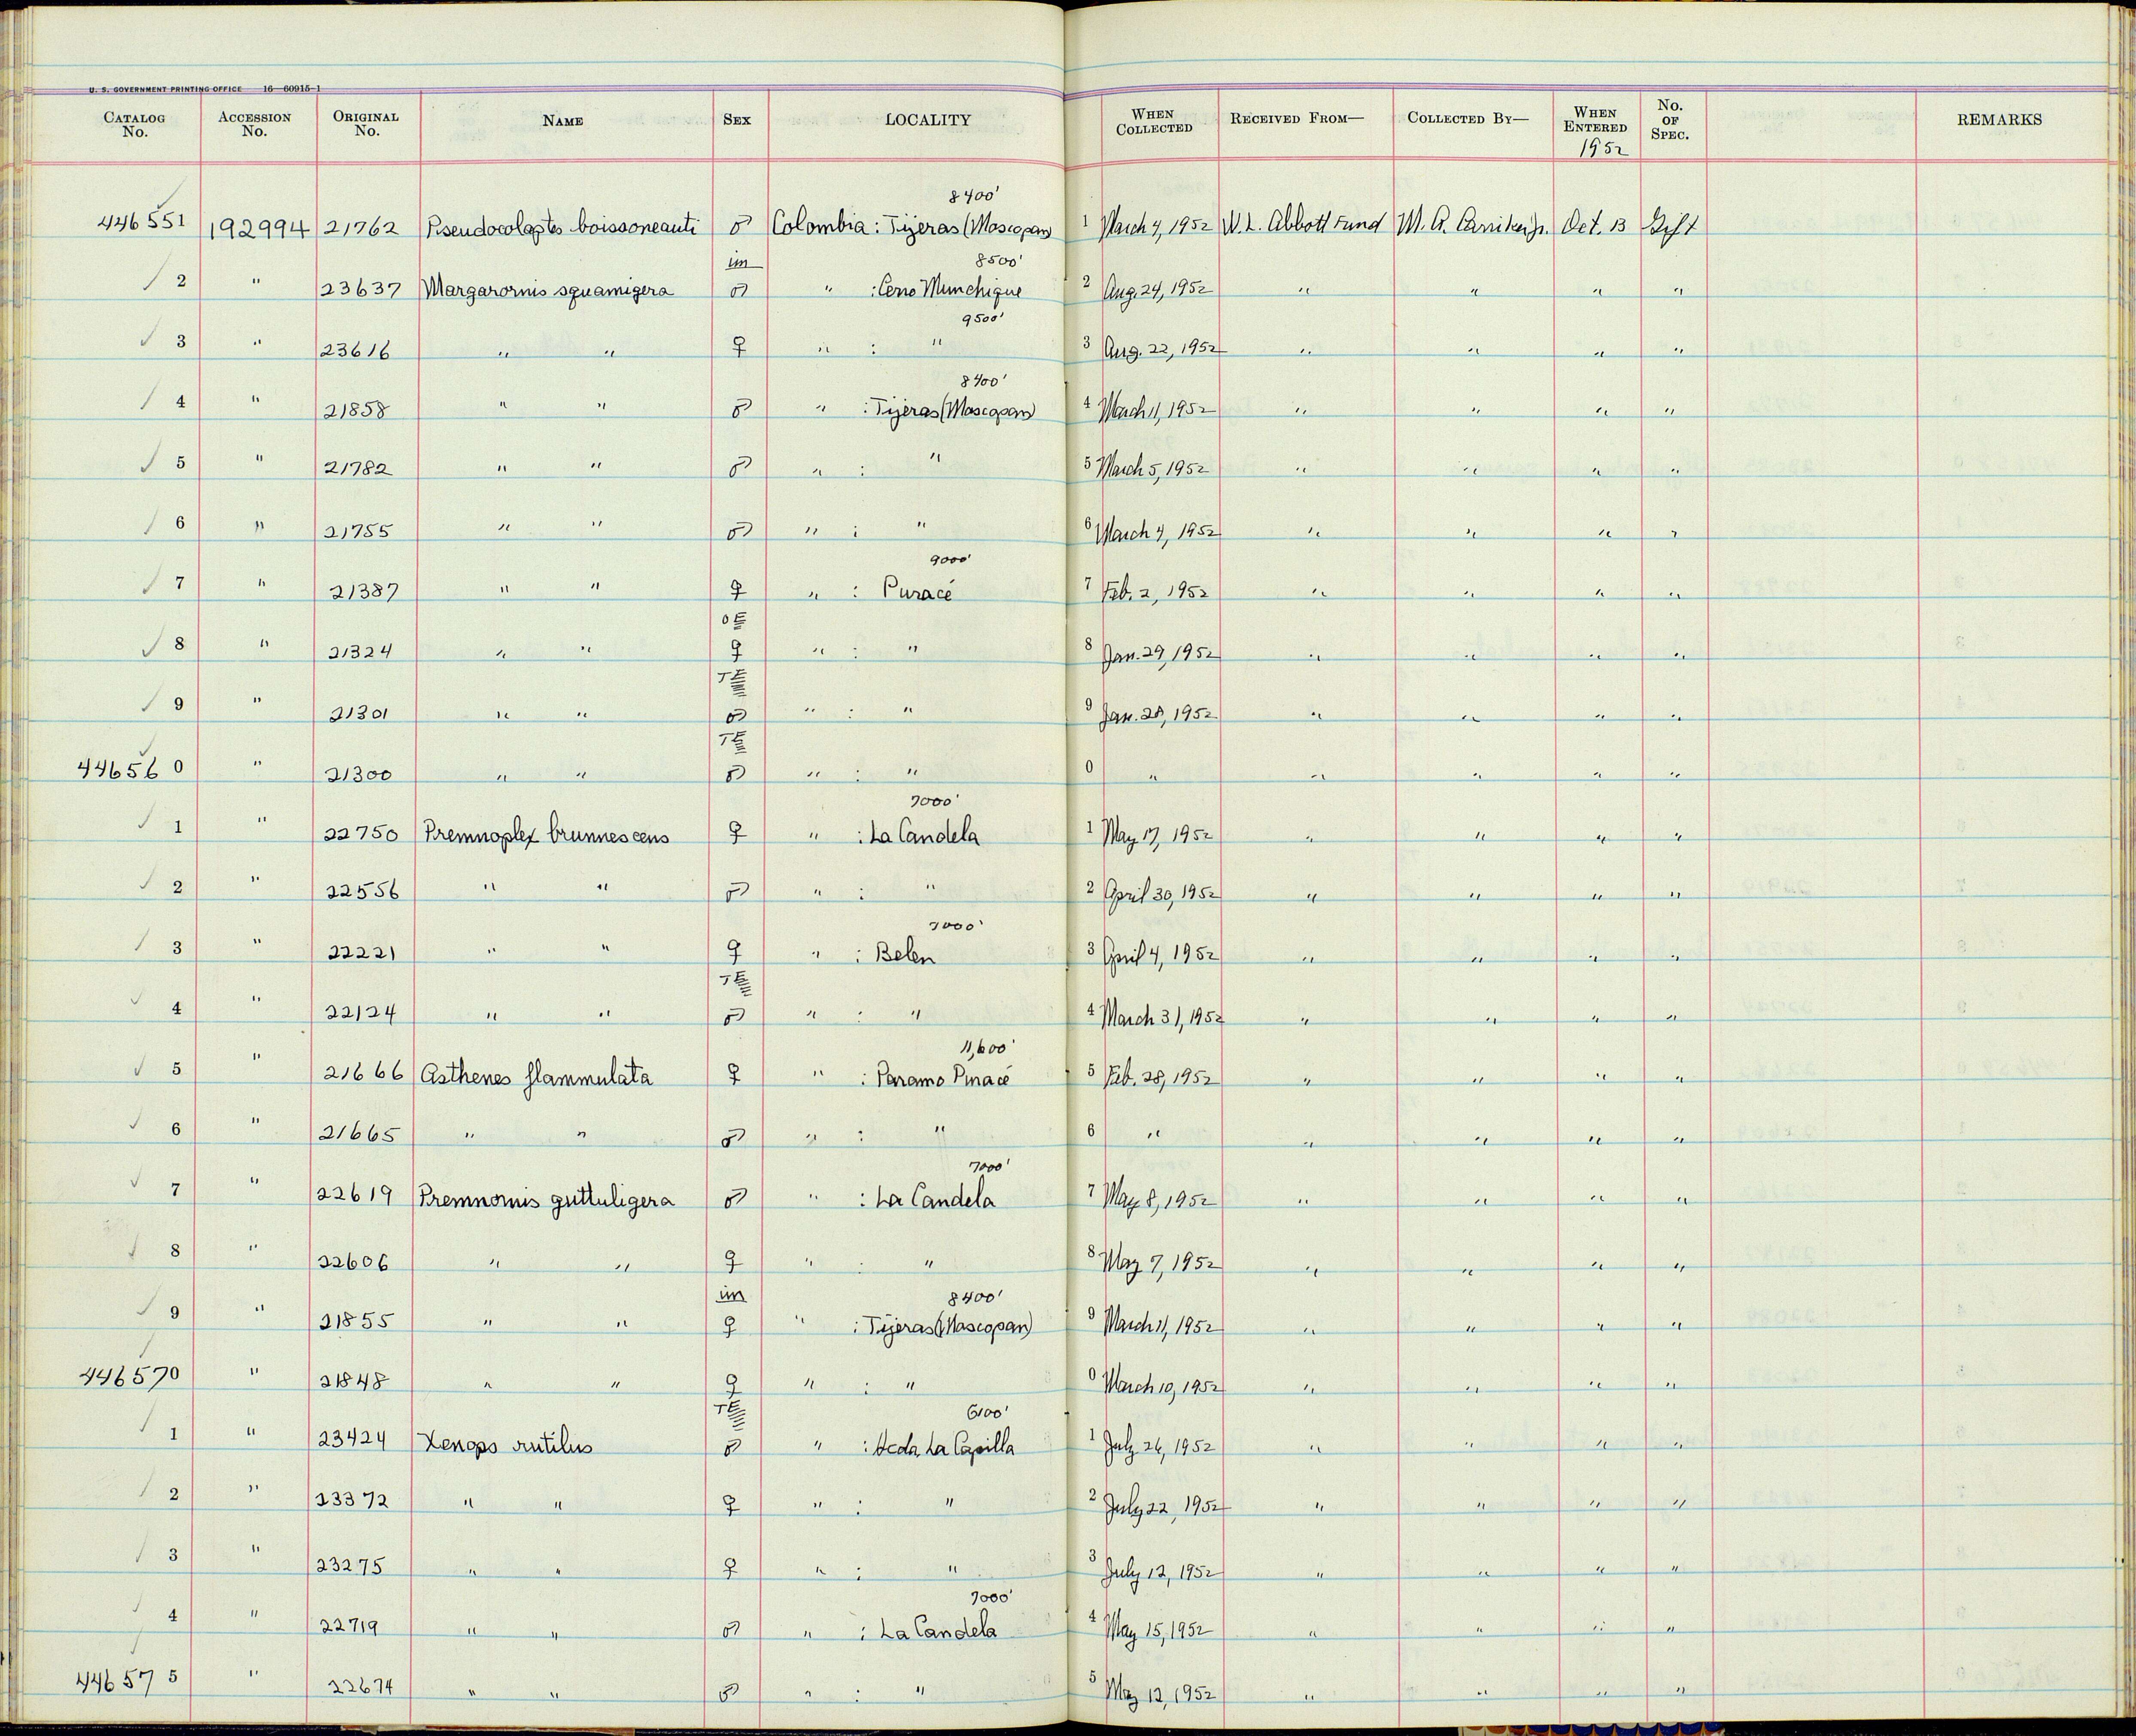 U. S. GOVERNMENT PRINTING OFFICE 16—60915-1
CATALOG No. ACCESSION No. ORIGINAL No. NAME SEX LOCALITY WHEN COLLECTED RECEIVED FROM— COLLECTED BY— WHEN ENTERED 1952 No. OF SPEC. REMARKS
8400'
446551 192994 21762 Pseudocolaptes boissoneauti ♂ Colombia : Tijeras (Moscopan) 1 March 4, 1952 W. L. Abbott Fund M. A. Carriker, Jr. Oct. 13 Gift
im 8500'
2 " 23637 Margarornis squamigera ♂ " : Cerro Munchique 2 Aug. 24, 1952 " " " "
9500'
3 " 23616 " " ♀ " : " 3 Aug. 22, 1952 " " " "
8400'
4 " 21858 " " ♂ " : Tijeras (Moscopan) 4 March 11, 1952 " " " "
5 " 21782 " " ♂ " : " 5 March 5, 1952 " " " "
6 " 21755 " " ♂ " : " 6 March 4, 1952 " " " "
9000'
7 " 21387 " " ♀ " : Puracé 7 Feb. 2, 1952 " " " "
OE
8 " 21324 " " ♀ " : " 8 Jan. 29, 1952 " " " "
TE
9 " 21301 " " ♂ " : " 9 Jan. 28, 1952 " " " "
TE
446560 " 21300 " " ♂ " : " 0 " " " " "
7000'
1 " 22750 Premnoplex brunnescens ♀ " : La Candela 1 May 17, 1952 " " " "
2 " 22556 " " ♂ " : " 2 April 30, 1952 " " " "
7000'
3 " 22221 " " ♀ " : Belen 3 April 4, 1952 " " " "
TE
4 " 22124 " " ♂ " : " 4 March 31, 1952 " " " "
11,600'
5 " 21666 Asthenes flammulata ♀ " : Paramo Puracé 5 Feb. 28, 1952 " " " "
6 " 21665 " " ♂ " : " 6 " " " " "
7000'
7 " 22619 Premnornis guttuligera ♂ " : La Candela 7 May 8, 1952 " " " "
8 " 22606 " " ♀ " : " 8 May 7, 1952 " " " "
im 8400'
9 " 21855 " " ♀ " : Tijeras (Moscopan) 9 March 11, 1952 " " " "
446570 " 21848 " " ♀ " : " 0 March 10, 1952 " " " "
TE 6100'
1 " 23424 Xenops rutilus ♂ " : Hcda. La Capilla 1 July 26, 1952 " " " "
2 " 23372 " " ♀ " : " 2 July 22, 1952 " " " "
3 " 23275 " " ♀ " : " 3 July 12, 1952 " " " "
7000'
4 " 22719 " " ♂ " : La Candela 4 May 15, 1952 " " " "
446575 " 22674 " " ♂ " : " 5 May 12, 1952 " " " "